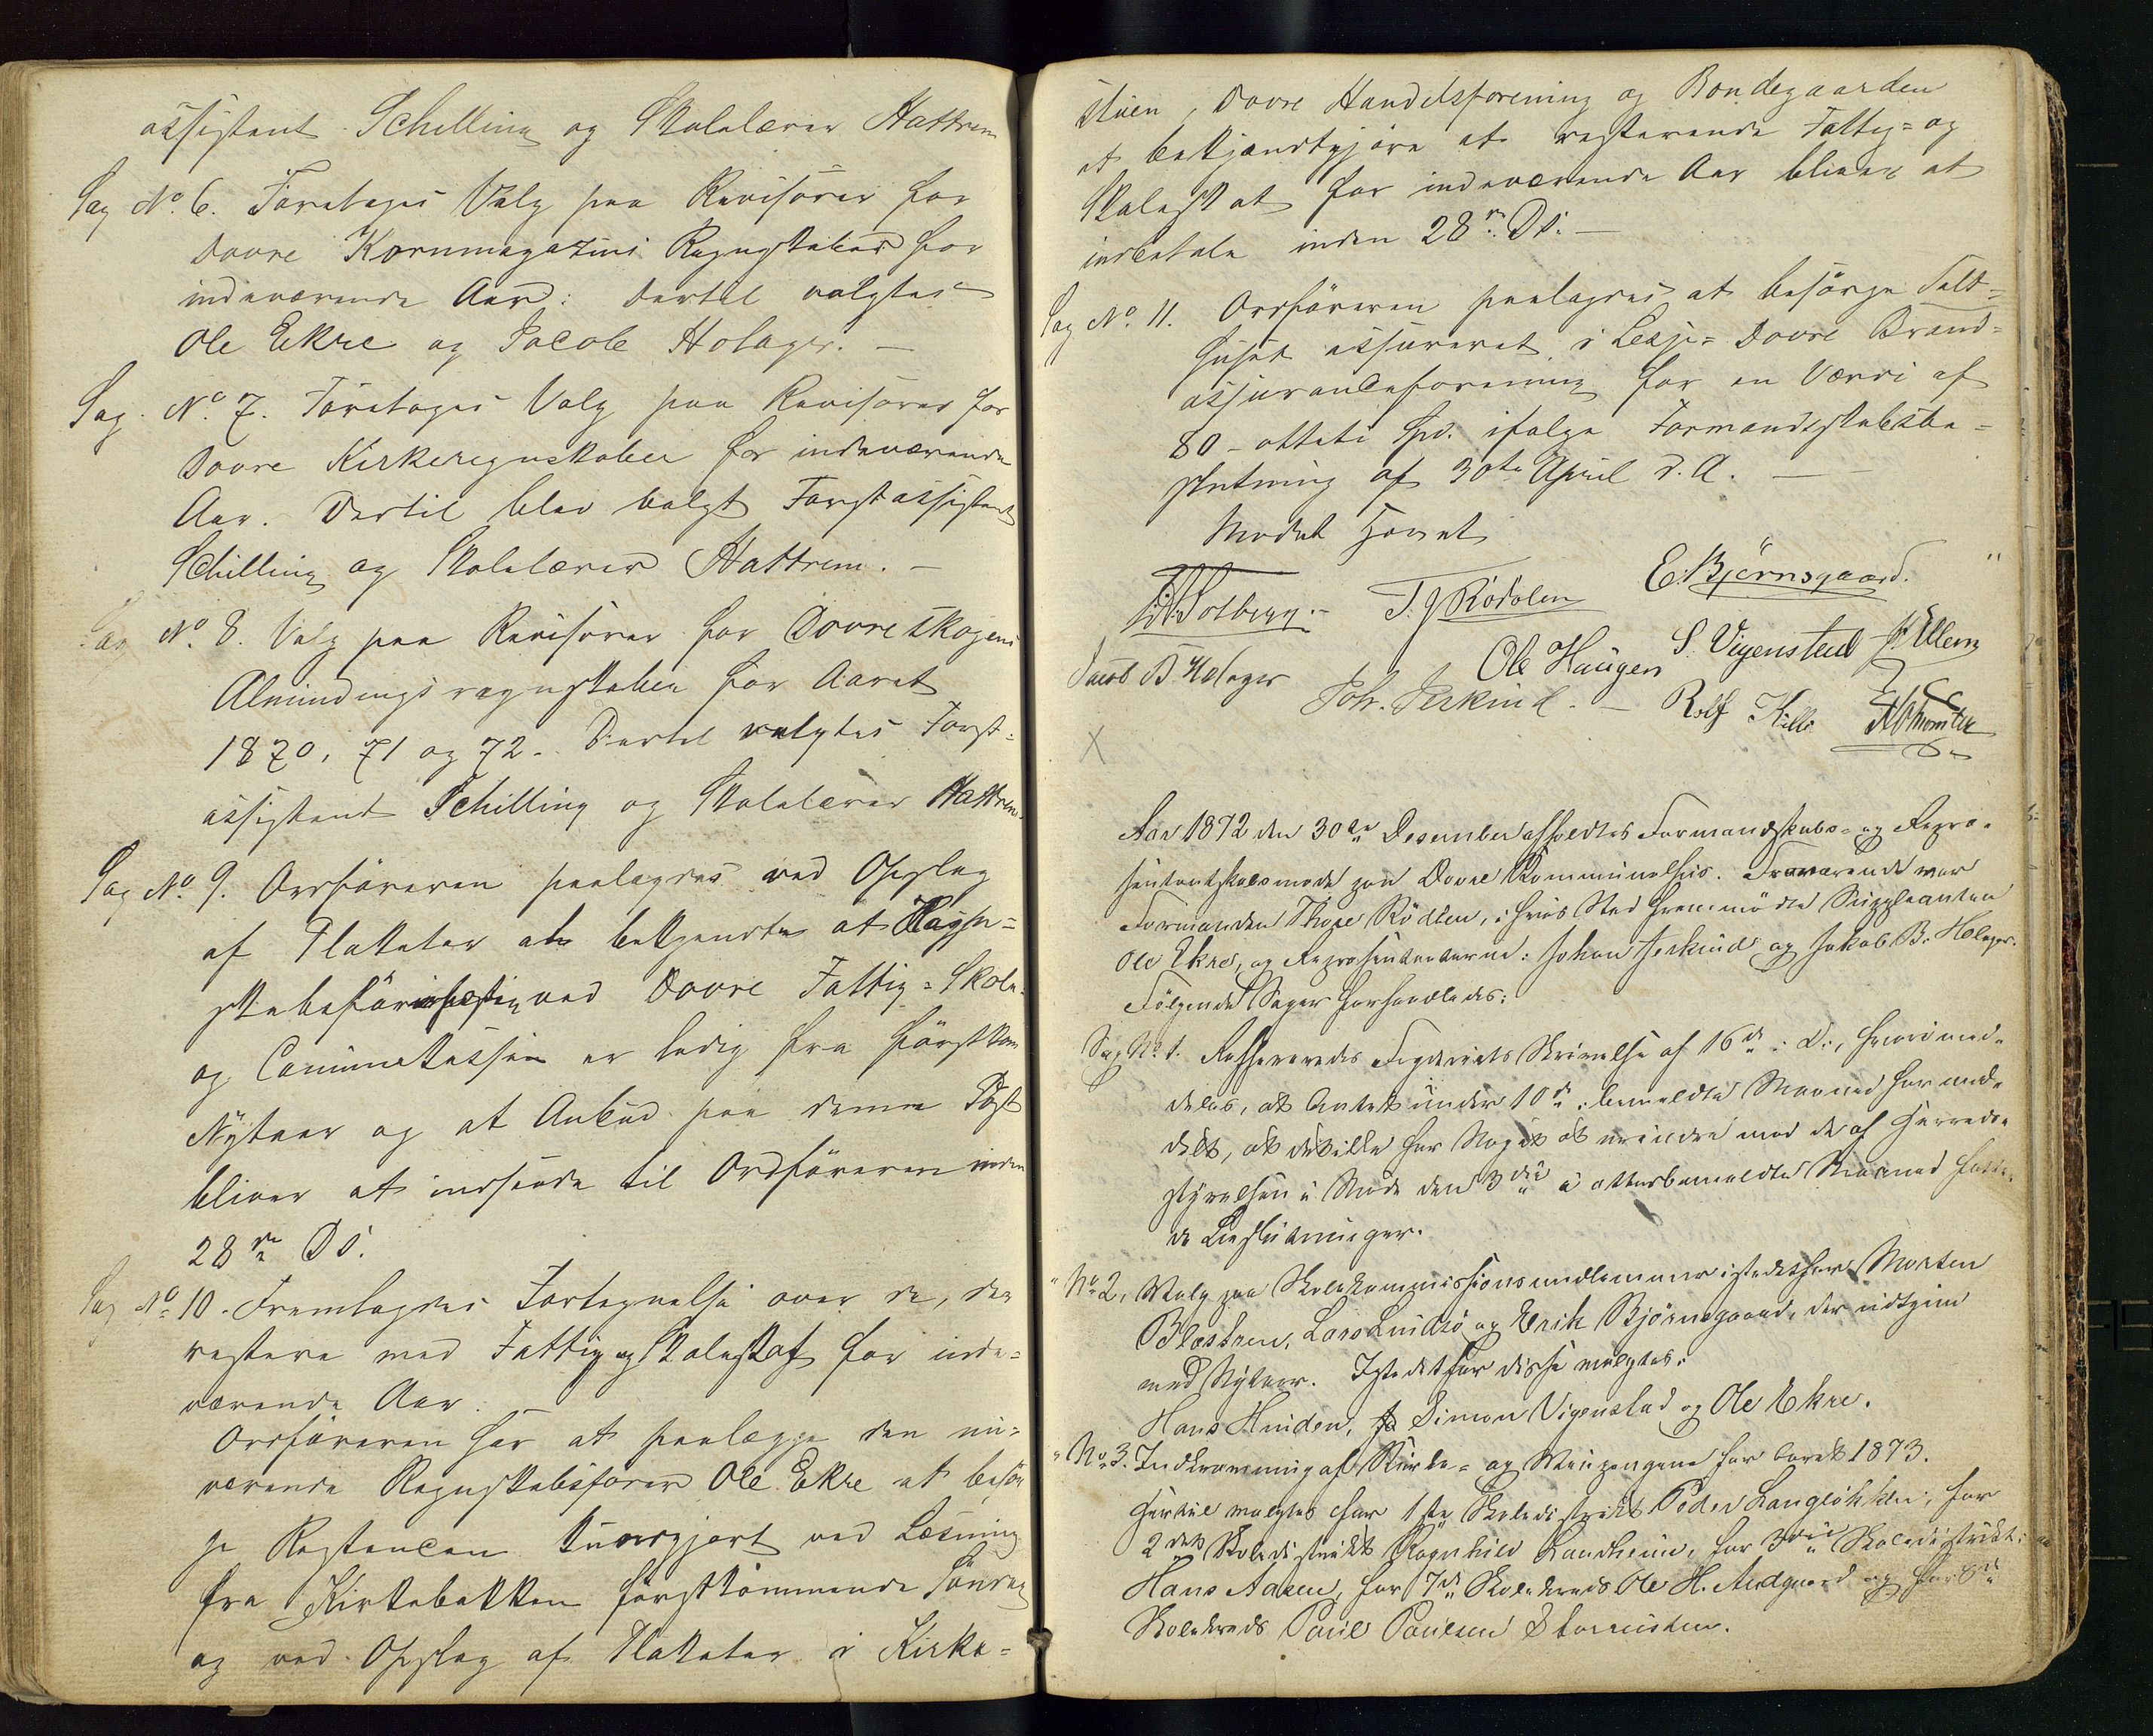 assistent Schilling og Skolelærer Hattrem
Sag No. 6. Foretoges Valg paa Revisorer for
Dovre Kornmagazins Regnskaber for
indeværende Aar: dertil valgtes
Ole Ekre og Jacob Holager. —
Sag No. 7. Foretoges Valg paa Revisorer for
Dovre Kirkeregnskaber for indeværende
Aar. Dertil blev valgt Forstassistent
Schilling og Skolelærer Hattrem. —
Sag No. 8. Valg paa Revisorer for Dovreskogens
Almindingsregnskaber for Aaret
1870, 71 og 72. Dertil valgtes Forst-
assistent Schilling og Skolelærer Hattrem
Sag No. 9. Ordføreren paalagdes ved Opslag
af Plakater at bekjendte at Regn-
skabsfører ved Dovre Fattig- Skole-
og Communekassen er ledig fra førstkom
Nytaar og at Anbud paa denne Post
bliver at indsende til Ordføreren inden
28de Ds.
Sag No. 10. Fremlagdes Fortegnelse over de, der
restere med Fattig og Skoleskat for inde-
værende Aar.
Ordføreren har at paalægge den nu-
værende Regnskabsfører Ole Ekre at besør
ge Restancen kundgjort ved Læsning
fra Kirkebakken førstkommende Søndag
og ved Opslag af Plakater i Kirke-
stuen, Dovre Handelsforening og Bondegaarden
at bekjendtgjøre at resterende Fattig- og
Skoleskat for indeværende Aar bliver at
indbetale inden 28de Ds. —
Sag No. 11. Ordføreren paalagdes at besørge
huset assureret i Lesje- Dovre Brand-
assuranceforening for en Værdi af
80 - otteti Spd. ifølge Formandskabsbe-
slutning af 30te April d. A. —
Mødet hævet
Solberg. T. J Rødolen E. Bjørnsgaard.
Ole Haugen S. Vigenstad
Jacob B. Holager Joh. Jerkind. — Rolf Killi
X
Aar 1872 den 30te Desember afholdtes Formandskabs- og Repræ-
sentantskabsmøde paa Dovre Kommunelhus. Fraværende var
Formanden Thore Rødlen, i hvis Sted fremmødte Suppleanten
Ole Ekre, og Repræsentanterne: Johan Jerkind og Jakob B. Holager.
Følgende Sager forhandledes:
Sag No. 1. Refereredes Fogderiets Skrivelse af 16de d., hvori med-
deles, at Amtet under 10de bemeldte Maaned har med-
delt, at det ikke har Noget at erindre mod de af Herreds-
styrelsen i Møde den 3die i bemeldte Maaned fatte-
de Beslutninger.
" No. 2. Valg paa Skolekommissionsmedlemmer istedetfor Morten
Blæstren, Lars Lindsø og Erik Bjørnsgaard, der udtgaa
med Nytaar. Istedetfor disse valgtes:
Hans Hinden, Simon Vigenstad og Ole Ekre.
" No. 3. Indkrævning af Kirke- og Veipengene for Aaret 1873.
Hertil valgtes for 1ste Skoledistrikt Peder Langløkken, for
2det Skoledistrikt Ragnhild Landheim, for 3die Skoledistrikt:
Hans Aasen, for 7de Skolekreds Ole H. Andgaard og for 8de
Skolekreds Paul Paulsen Storrusten.